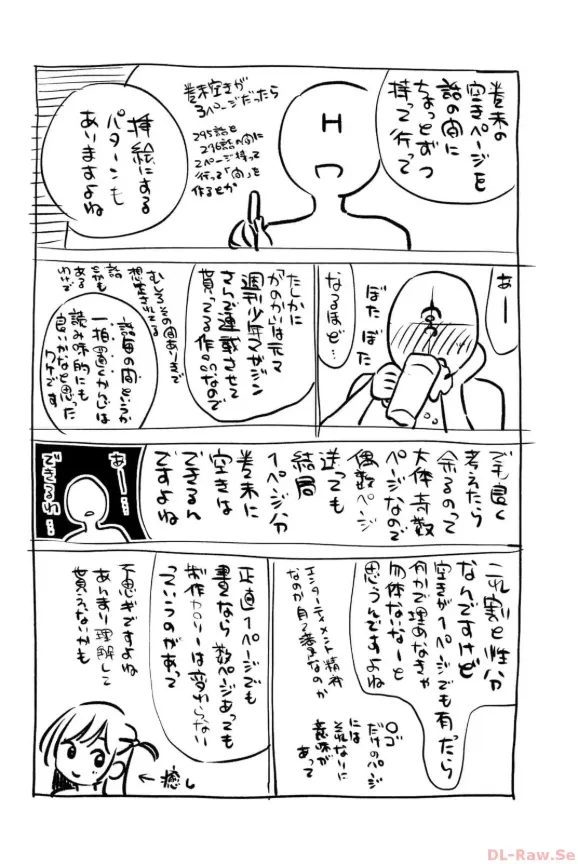 巻末の
空きページを
話の間に
ちょっとずつ
持って行って
H
巻末空きが
3ページだったら
295話と
296話の間に
2ページ持って
行って「間」を
作るとか
挿絵にする
パターンも
ありますよね
あー
なるほど…
ぼた
ぼた
たしかに
かのかりは元々
週刊少年マガジン
さんで連載させて
貰ってる作品なので
むしろその間ありきで
想定されてる
話
とかも
ある
わけで
話毎の間というか
一拍置くかんじは
読み味的にも
良いかなと思った
ワケです
でも良く
考えたら
余るのって
大体奇数
ページなので
偶数ページ
送っても
結局
1ページ分
巻末に
空きは
できるん
ですよね
あー…
できるわ…
これ割と性分
なんですけど
空きが1ページでも有ったら
何かで埋めなきゃ
勿体ないなーと
思うんですよね
エンターテイメント精神
なのか月マ漫画なのか
ロゴ
だけのページ
には
それなりに
意味が
あって
正直1ページでも
書くなら数ページあっても
製作カロリーは変わらない
っていうのがあって
不思ギですよね
あんまり理解して
貰えないかも
←癒し
DL-Raw.Se